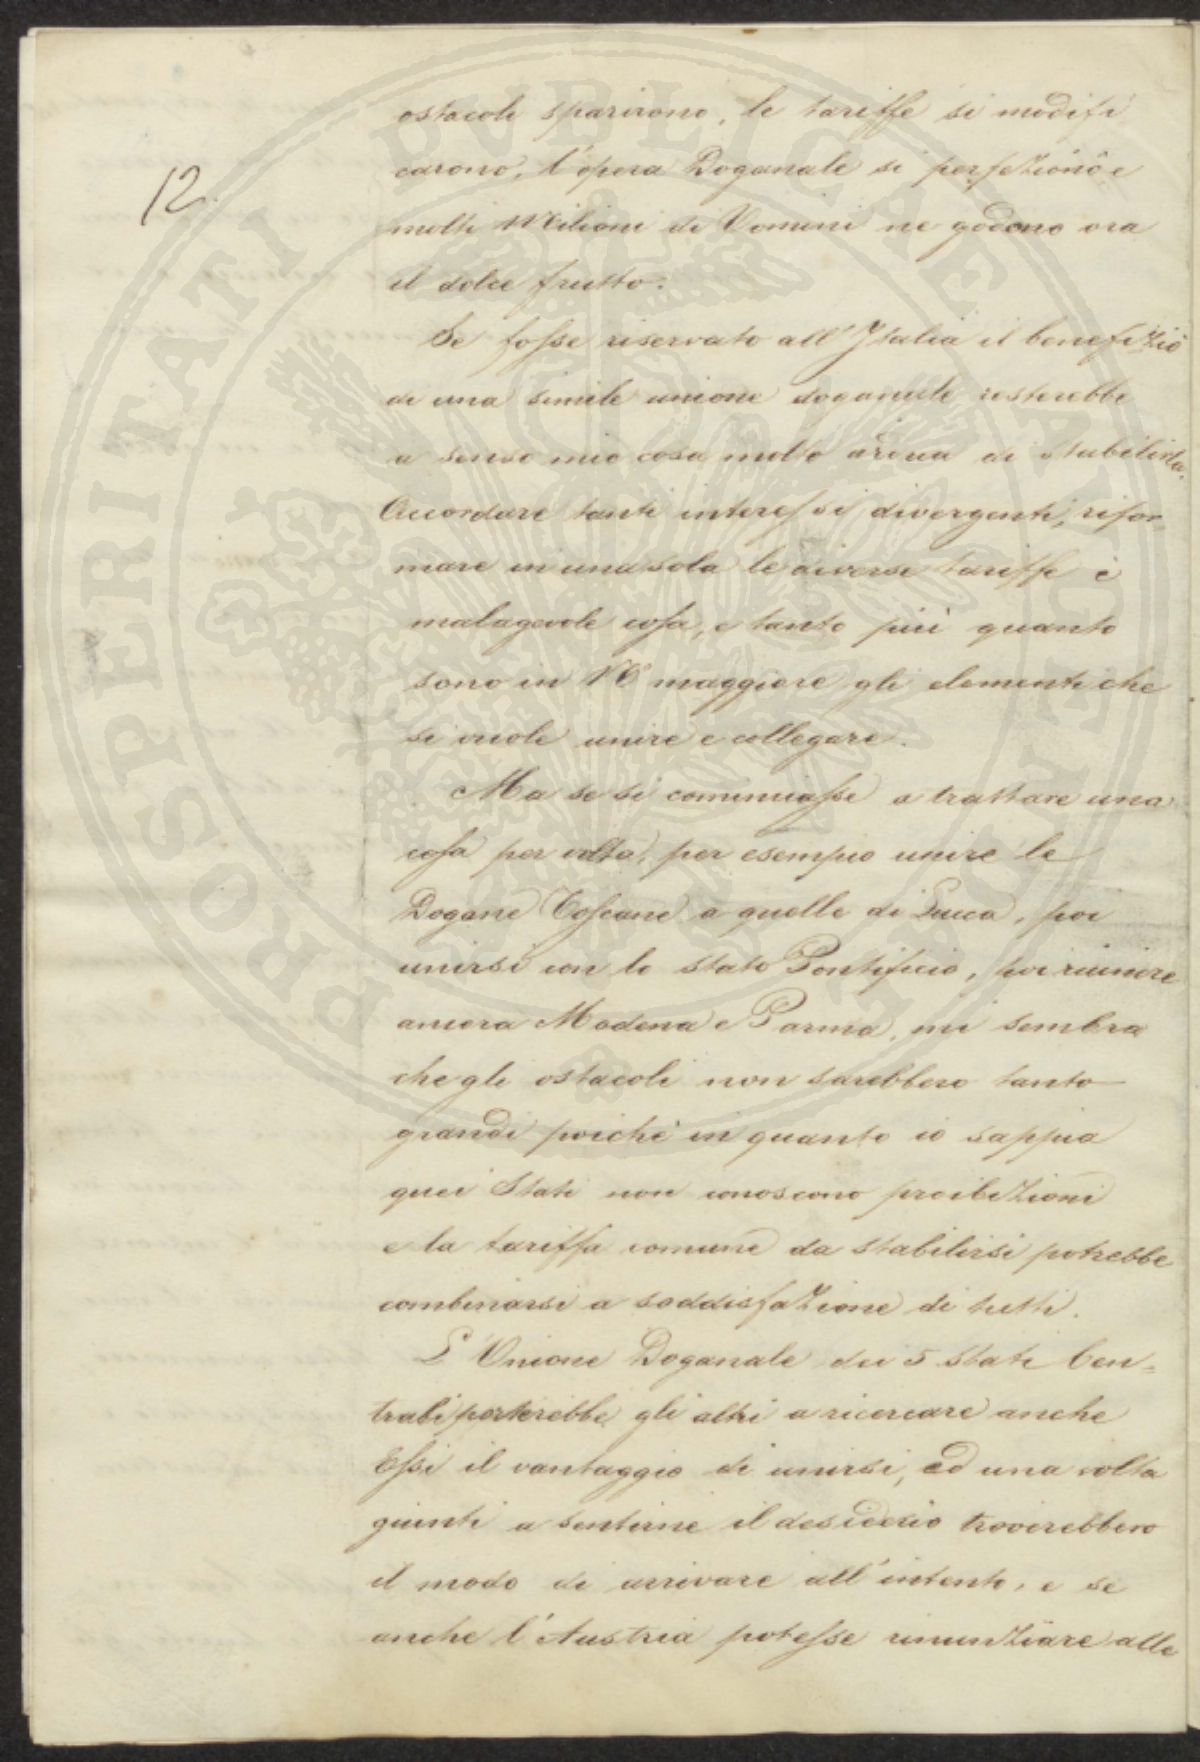 12.
ostacoli sparirono, le tariffe si modifi
carono, l'opera Doganale si perfezionò e
molti Milioni di Uomini ne godono ora
il dolce frutto.
Se fosse riservato all'Italia il benefizio
di una simile unione doganale resterebbe
a senso mio cosa molto ardua di stabilirla.
Accordare tanti interessi divergenti, rifor-
mare in una sola le diverse tariffe è
malagevole cosa, e tanto più quanto
sono in N.º maggiore gli elementi che
si vuole unire e collegare.
Ma se si cominciasse a trattare una
cosa per volta, per esempio unire le
Dogane Toscane a quelle di Lucca, poi
unirsi con lo stato Pontificio, poi riunire
ancora Modena e Parma, mi sembra
che gli ostacoli non sarebbero tanto
grandi poiché in quanto io sappia
quei Stati non conoscono proibizioni
e la tariffa comune da stabilirsi potrebbe
combinarsi a soddisfazione di tutti.
L'Unione Doganale dei 5 stati Cen-
trali porterebbe gli altri a ricercare anche
Essi il vantaggio di unirsi, ed una volta
giunti a sentirne il desiderio troverebbero
il modo di arrivare all'intento, e se
anche l'Austria potesse rinunziare alle
PROSPERITATI PVBLICAE AVGENDAE